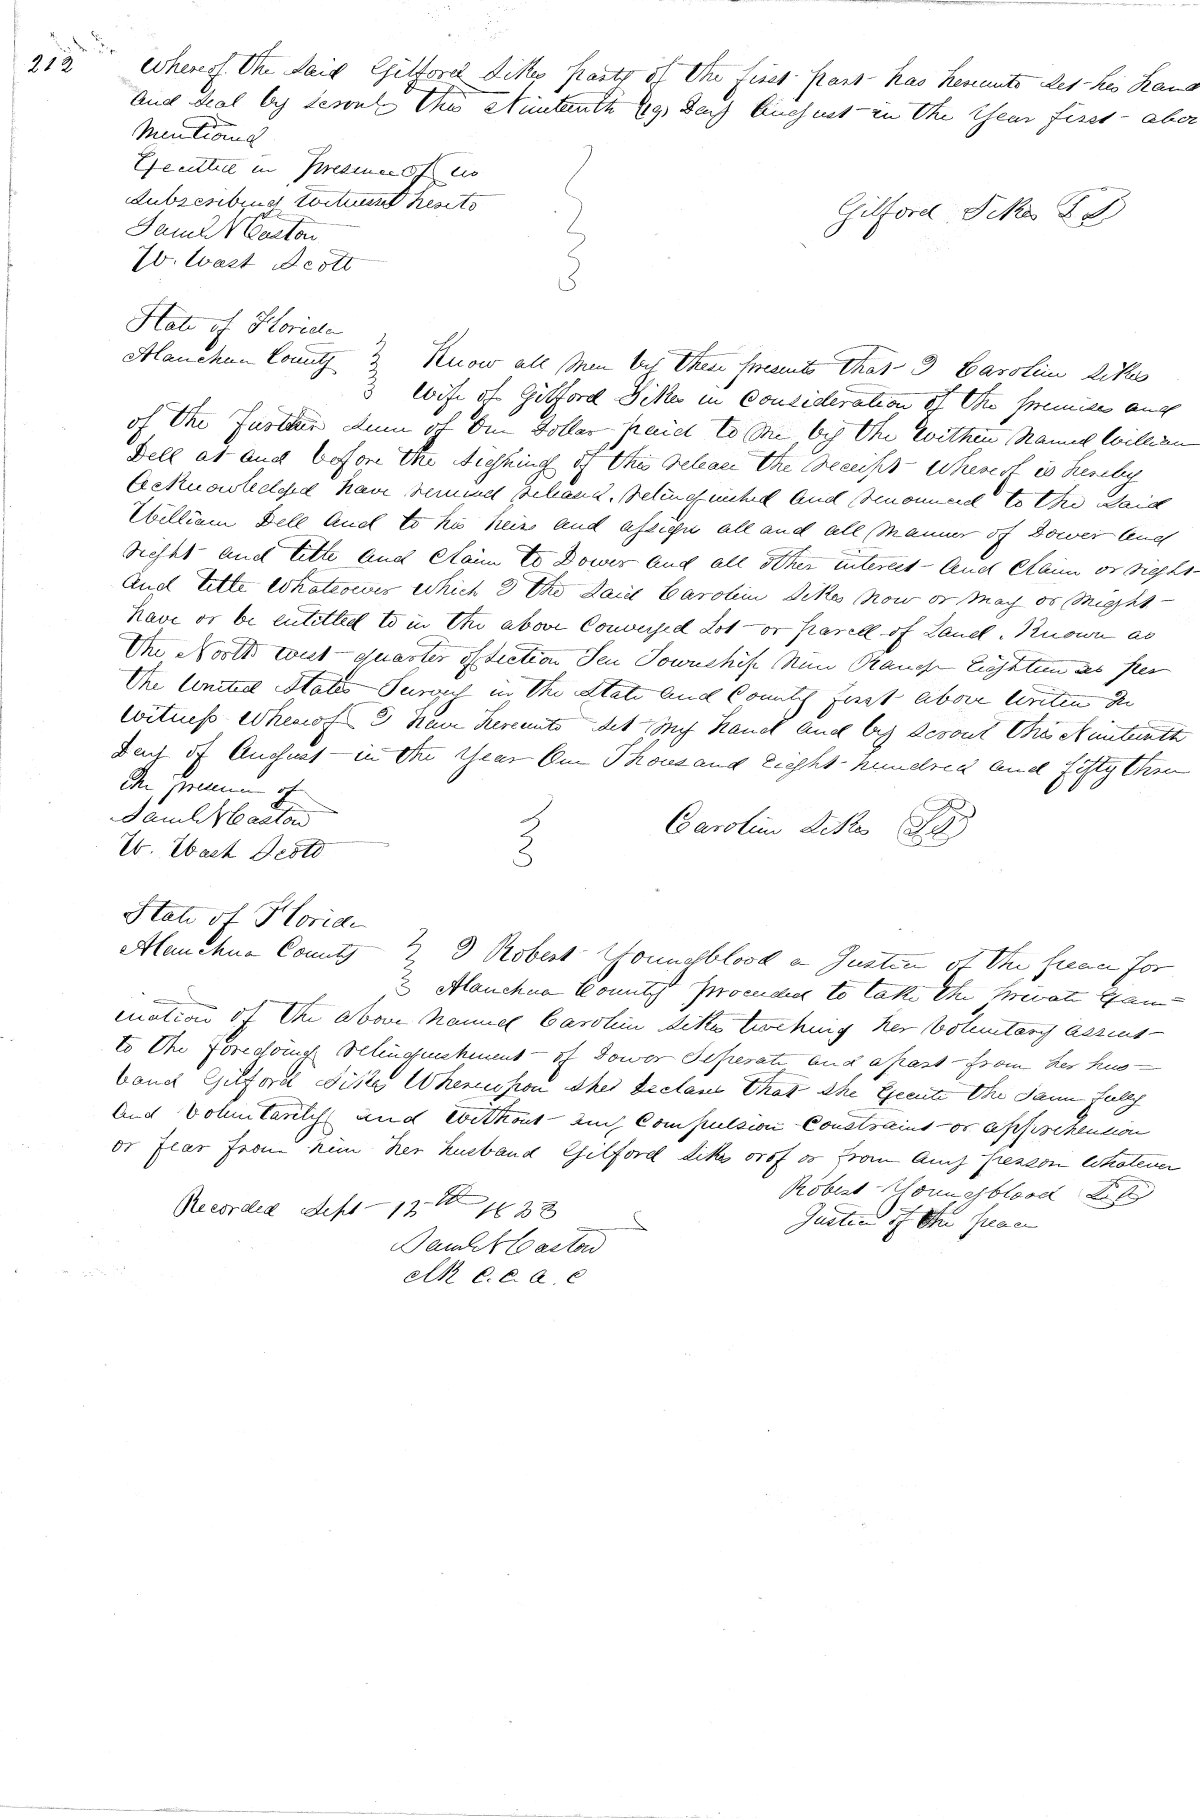 212
Whereof the Said Gilford Sikes party of the first part has hereunto Set his Hand
and Seal by Scroul this Ninteenth (19) Day August in the Year first above
Mentiond
Executed in presence of us
Subscribing Witnesses hereto
Saml N Caston
W. West Scott
Gilford Sikes L S
State of Florida
Alauchua County
Know all Men by These presents that I Carolin Sikes
Wife of Gilford Sikes in Consideration of the premises and
of the further Sum of One Dollar paid to Me by the Within Named William
Dell at and before the Sighning of this release the receipt whereof is hereby
Acknowledged have remised released. relinquished and renounced to the Said
William Dell and to his heirs and assigns all and all Manner of Dower and
right and title and Claim to Dower and all other interest and Claim or right
and title Whatsoever Which I the Said Carolin Sikes Now or May or Might
have or be entitled to in the above Conveyed Lot or parcell of Land. Known as
the North West quarter of Section Ten Township Nine Range Eighteen as per
the United States Survey in the State and County first above Writen In
Witness Whereof I have hereunto Set My hand and by Scroul this Ninteenth
Day of August in the Year One Thousand Eight hundred and fifty three
In presence of
Saml N Caston
W. West Scott
Carolin Sikes L S
State of Florida
Alauchua County
I Robert Youngblood a Justice of the peace for
Alauchua County proceeded to take the private Exam=
ination of the above Named Carolin Sikes toching her Voluntary assent
to the foregoing relinquishment of Dower Seperate and apart from her hus=
band Gilford Sikes Whereupon She Declares that She Execute the Same fully
And Voluntarily and Without any Compulsion Constraint or apprehension
or fear from him her husband Gilford Sikes or of or from any person Whatever
Robert Youngblood L S
Justice of the peace
Recorded Sept 12th
Saml N Caston
Clk C. C. A. C